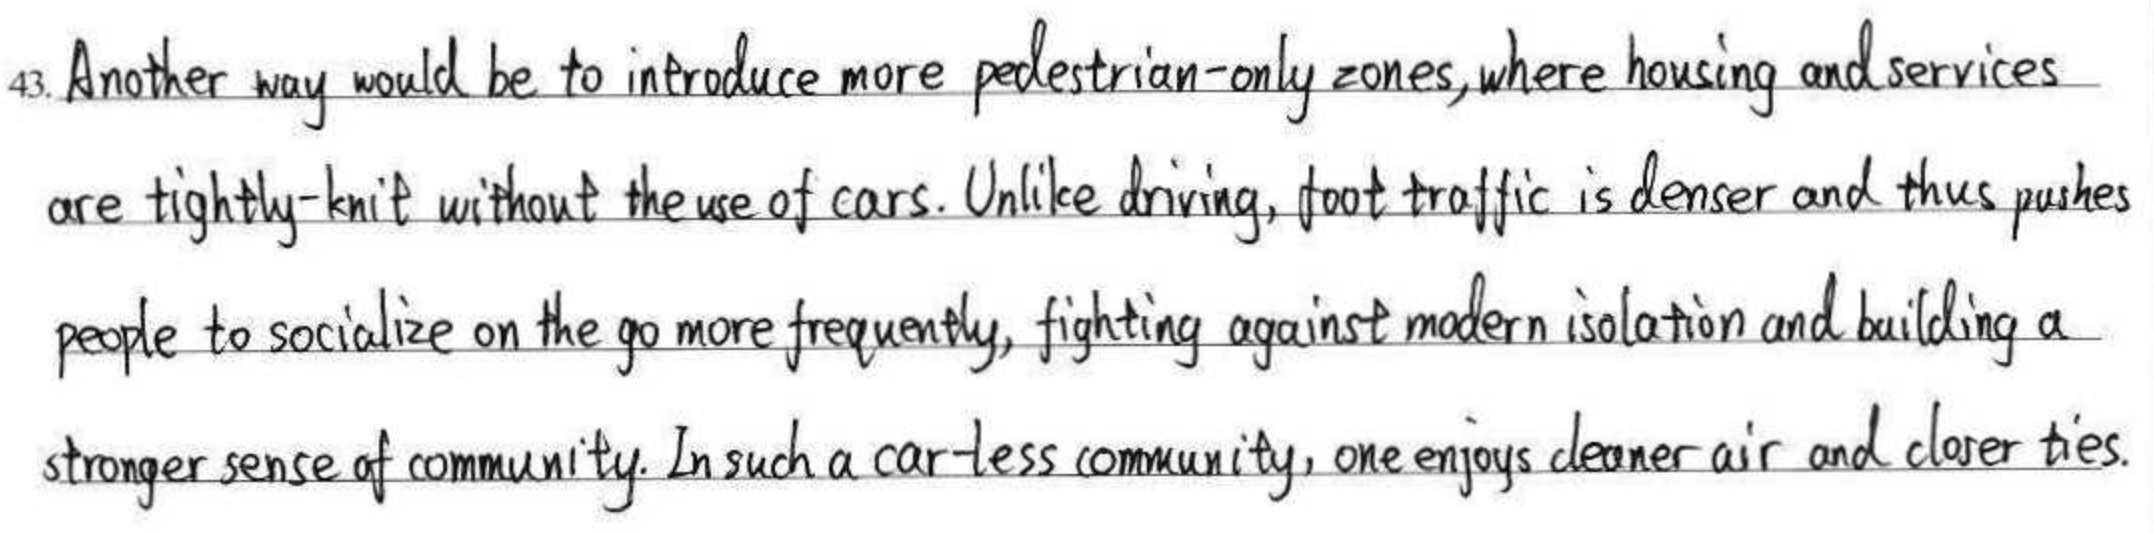 43. Another way would be to introduce more pedestrian-only zones, where housing and services
are tightly-knit without the use of cars. Unlike driving, foot traffic is denser and thus pushes
people to socialize on the go more frequently, fighting against modern isolation and building a
stronger sense of community. In such a car-less community, one enjoys cleaner air and closer ties.